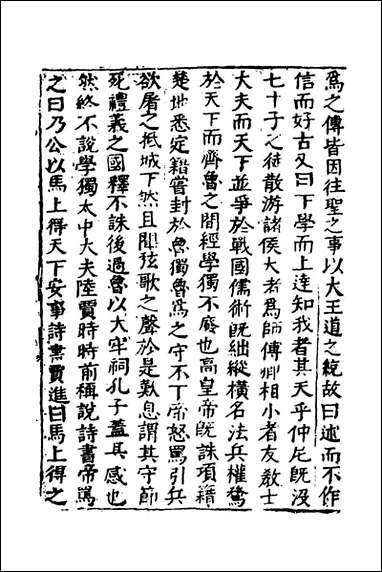 爲之傳皆因往聖之事以大王道之統故曰述而不作
信而好古又曰下學而上達知我者其天乎仲尼旣没
七十子之徒散游諸侯大者爲師傅卿相小者友敎士
大夫而天下並爭於戰國儒術旣絀縱橫名法兵權騖
於天下而齊魯之間經學獨不廢也高皇帝旣誅項籍
楚地悉定籍嘗封於魯獨魯爲之守不丁帝怒罵引兵
欲屠之抵城下然且聞弦歌之聲於是歎息謂其守節
死禮義之國釋不誅後過魯以大牢祠孔子蓋其感也
然終不說學獨太中大夫陸賈時時前稱說詩書帝罵
之曰乃公以馬上得天下安事詩書賈進曰馬上得之